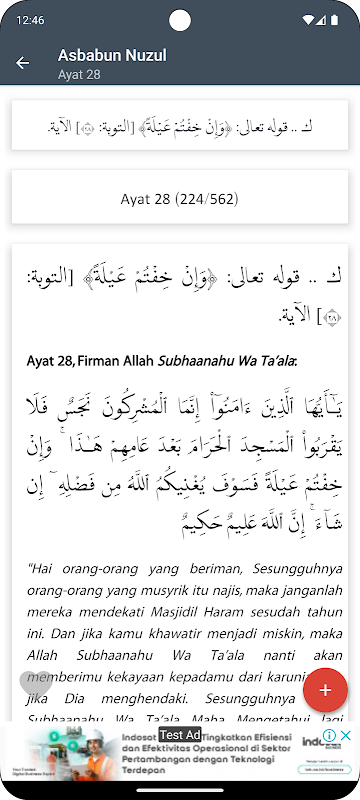 12:46
Asbabun Nuzul
Ayat 28
ك .. قوله تعالى: ﴿وَإِنْ خِفْتُمْ عَيْلَةً﴾ [التوبة: ٢٨] الآية.
Ayat 28 (224/562)
ك .. قوله تعالى: ﴿وَإِنْ خِفْتُمْ عَيْلَةً﴾ [التوبة:
٢٨] الآية.
Ayat 28, Firman Allah Subhaanahu Wa Ta'ala:
يَـٰٓأَيُّهَا ٱلَّذِينَ ءَامَنُوٓا۟ إِنَّمَا ٱلْمُشْرِكُونَ نَجَسٌ فَلَا
يَقْرَبُوا۟ ٱلْمَسْجِدَ ٱلْحَرَامَ بَعْدَ عَامِهِمْ هَـٰذَا ۚ وَإِنْ
خِفْتُمْ عَيْلَةً فَسَوْفَ يُغْنِيكُمُ ٱللَّهُ مِن فَضْلِهِۦٓ إِن
شَآءَ ۚ إِنَّ ٱللَّهَ عَلِيمٌ حَكِيمٌ
"Hai orang-orang yang beriman, Sesungguhnya
orang-orang yang musyrik itu najis, maka janganlah
mereka mendekati Masjidil Haram sesudah tahun
ini. Dan jika kamu khawatir menjadi miskin, maka
Allah Subhaanahu Wa Ta'ala nanti akan
memberimu kekayaan kepadamu dari
jika Dia menghendaki. Sesungguhnya
Subhaanahu Wa Ta'ala Maha Mengetahui lagi
Test Ad
Indosat Tingkatkan Efisiensi
dan Efektivitas Operasional di Sektor
Pertambangan dengan Teknologi
Terdepan